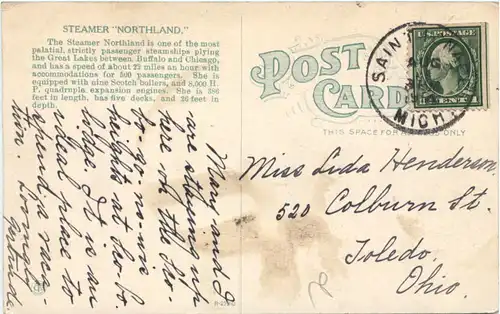 STEAMER "NORTHLAND,"
The Steamer Northland is one of the most
palatial, strictly passenger steamships plying
the Great Lakes between Buffalo and Chicago,
and has a speed of about 22 miles an hour with
accommodations for 500 passengers. She is
equipped with nine Scotch boilers, and 8,500 H.
P. quadruple, expansion engines. She is 386
feet in length, has five decks, and 26 feet in
depth.
POST
CARD
SAIN
MICH
U.S. POSTAGE
CENT
THIS SPACE FOR ONLY
Mary and I
are staying up
here at the
heights at
lodge. It is an
ideal place to
spend a vaca-
tion. Lovingly
Miss Lida Henderson
520 Colburn St.
Toledo,
Ohio.